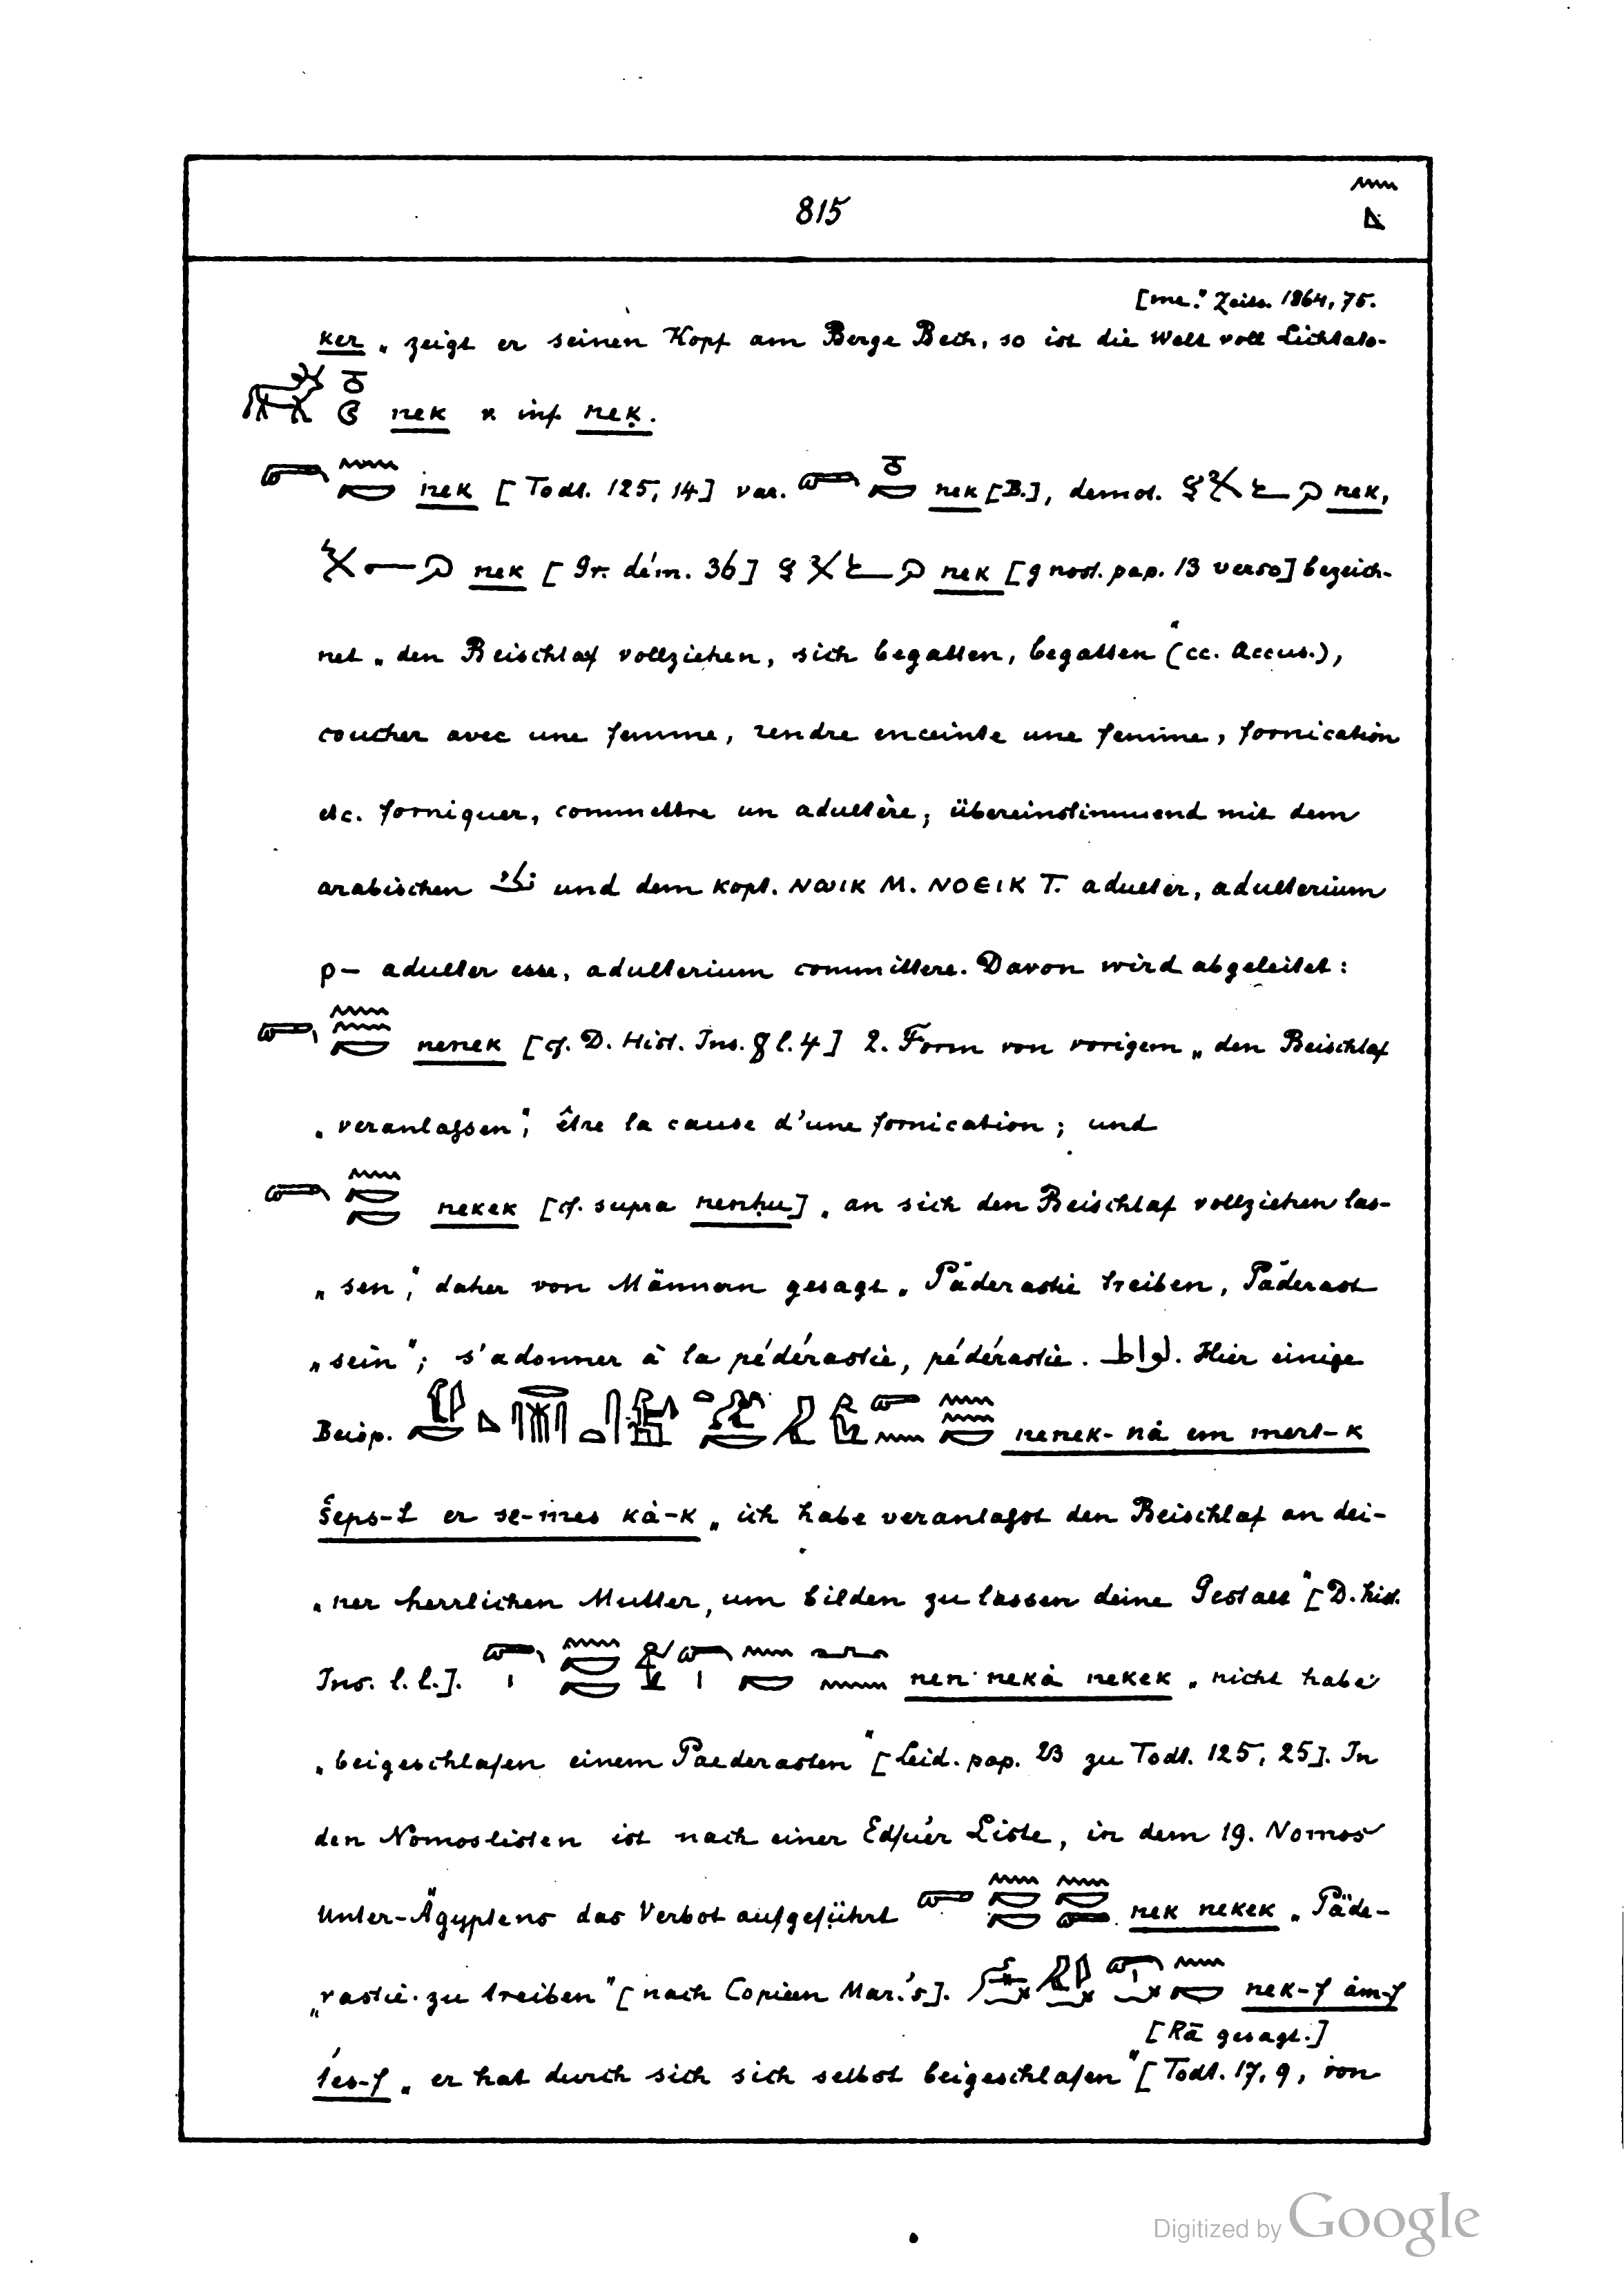 815
[me." Zeits. 1864, 75.
ker „ zeigt er seinen Kopf am Berge Bech, so ist die Welt voll Lichtato-
nek v inf neḳ.
nek [Todt. 125, 14] var. nek [B.], demot. nek,
nek [Gr. dém. 36] nek [gnost. pap. 13 verso] bezeich-
net „ den Beischlaf vollziehen, sich begatten, begatten" (cc. Accus.),
coucher avec une femme, rendre enceinte une femme, fornication
etc. forniquer, commettre un adultère; übereinstimmend mit dem
arabischen und dem kopt. ⲚⲰⲒⲔ M. ⲚⲞⲈⲒⲔ T. adulter, adulterium
ⲣ– adulter esse, adulterium committere. Davon wird abgeleitet:
nenek [cf. D. Hist. Ins. l. 4] 2. Form von vorigem „ den Beischlaf
„ veranlassen", être la cause d'une fornication; und
nekek [cf. supra nenḥu] „ an sich den Beischlaf vollziehen las-
„ sen", daher von Männern gesagt „ Päderastie treiben, Päderast
„ sein"; s'adonner à la pédérastie, pédérastie. لواط. Hier einige
Beisp. nenek-nȧ em mert-k
šeps-t er se-mes kȧ-k „ ich habe veranlasst den Beischlaf an dei-
„ ner herrlichen Mutter, um bilden zu lassen deine Gestalt" [D. hist.
Ins. l. l.]. nen nekȧ nekek „ nicht habe
„ beigeschlafen einem Paederasten" [Leid. pap. 23 zu Todt. 125, 25]. In
den Nomoslisten ist nach einer Edfuer Liste, in dem 19. Nomos
Unter-Ägyptens das Verbot aufgeführt nek nekek „ Päde-
„ rastie zu treiben" [nach Copieen Mar.'s]. nek-f ȧm-f
[Rā gesagt.]
t́es-f „ er hat durch sich sich selbst beigeschlafen" [Todt. 17, 9, von
Digitized by Google